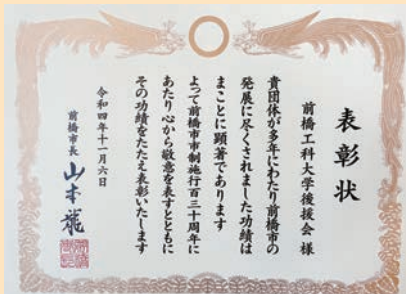 表彰状
前橋工科大学後援会 様
貴団体が多年にわたり前橋市の
発展に尽くされました功績は
まことに顕著であります
よって前橋市市制施行百三十周年に
あたり心から敬意を表すとともに
その功績をたたえ表彰いたします
令和四年十一月六日
前橋市長 山本龍